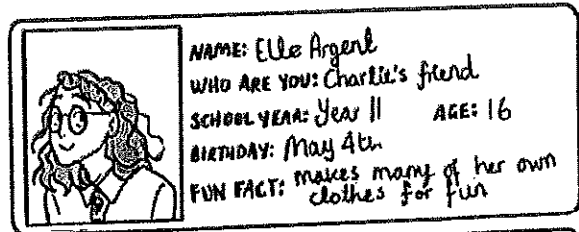 NAME: Elle Argent
WHO ARE YOU: Charlie's friend
SCHOOL YEAR: Year 11 AGE: 16
BIRTHDAY: May 4th
FUN FACT: makes many of her own
clothes for fun